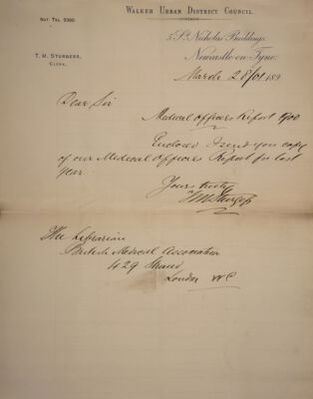 Walker Urban District Council.
Nat Tel 5300.
T. M. Sturgess,
Clerk.
5 St Nicholas Buildings,
Newcastle-on-Tyne,
March 28/01 189
Dear Sir
Medical Officers Report 1900
Enclosed I send you copy
of our Medical Officers Report for last
year.
Yours truly
T M Sturgess
The Librarian
British Medical Association
429 Strand
London W C